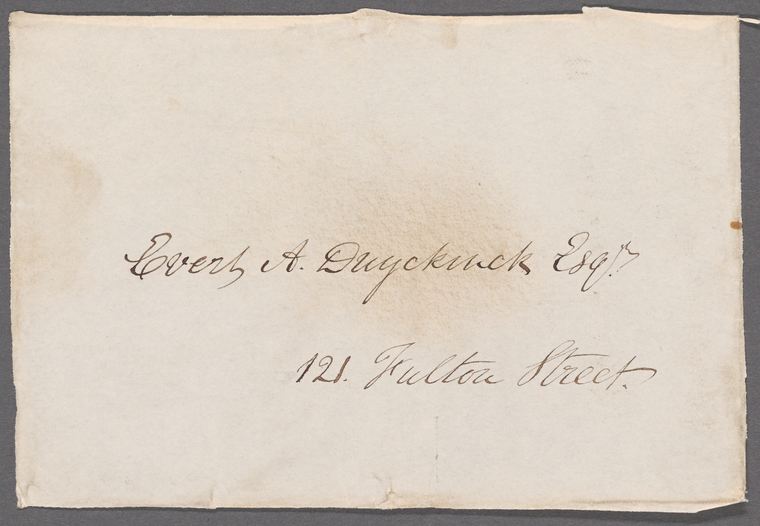 Evert A. Duyckinck Esqr.
121. Fulton Street.